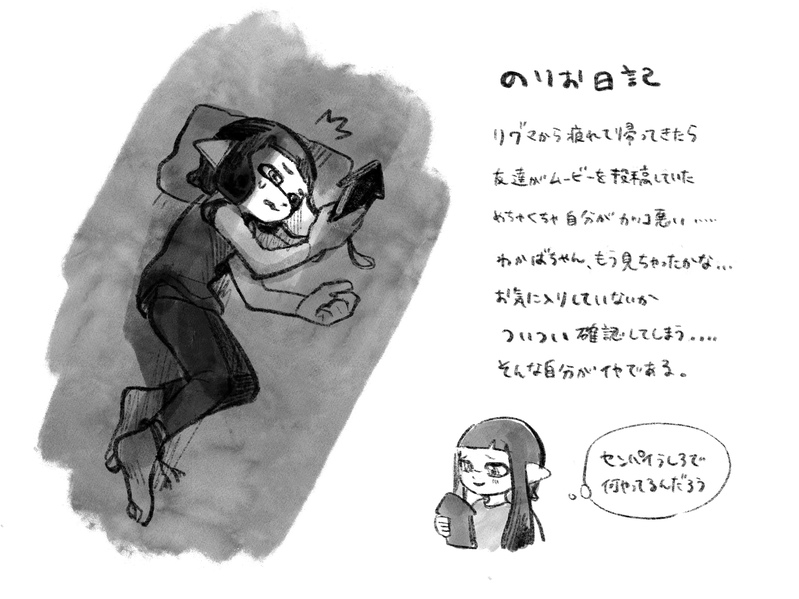 のりお日記
リグマから疲れて帰ってきたら
友達がムービーを投稿していた
めちゃくちゃ自分がカッコ悪い.....
わかばちゃん、もう見ちゃったかな...
お気に入りしていないか
ついつい確認してしまう....
そんな自分がイヤである。
センパイうしろで
何やってるんだろう